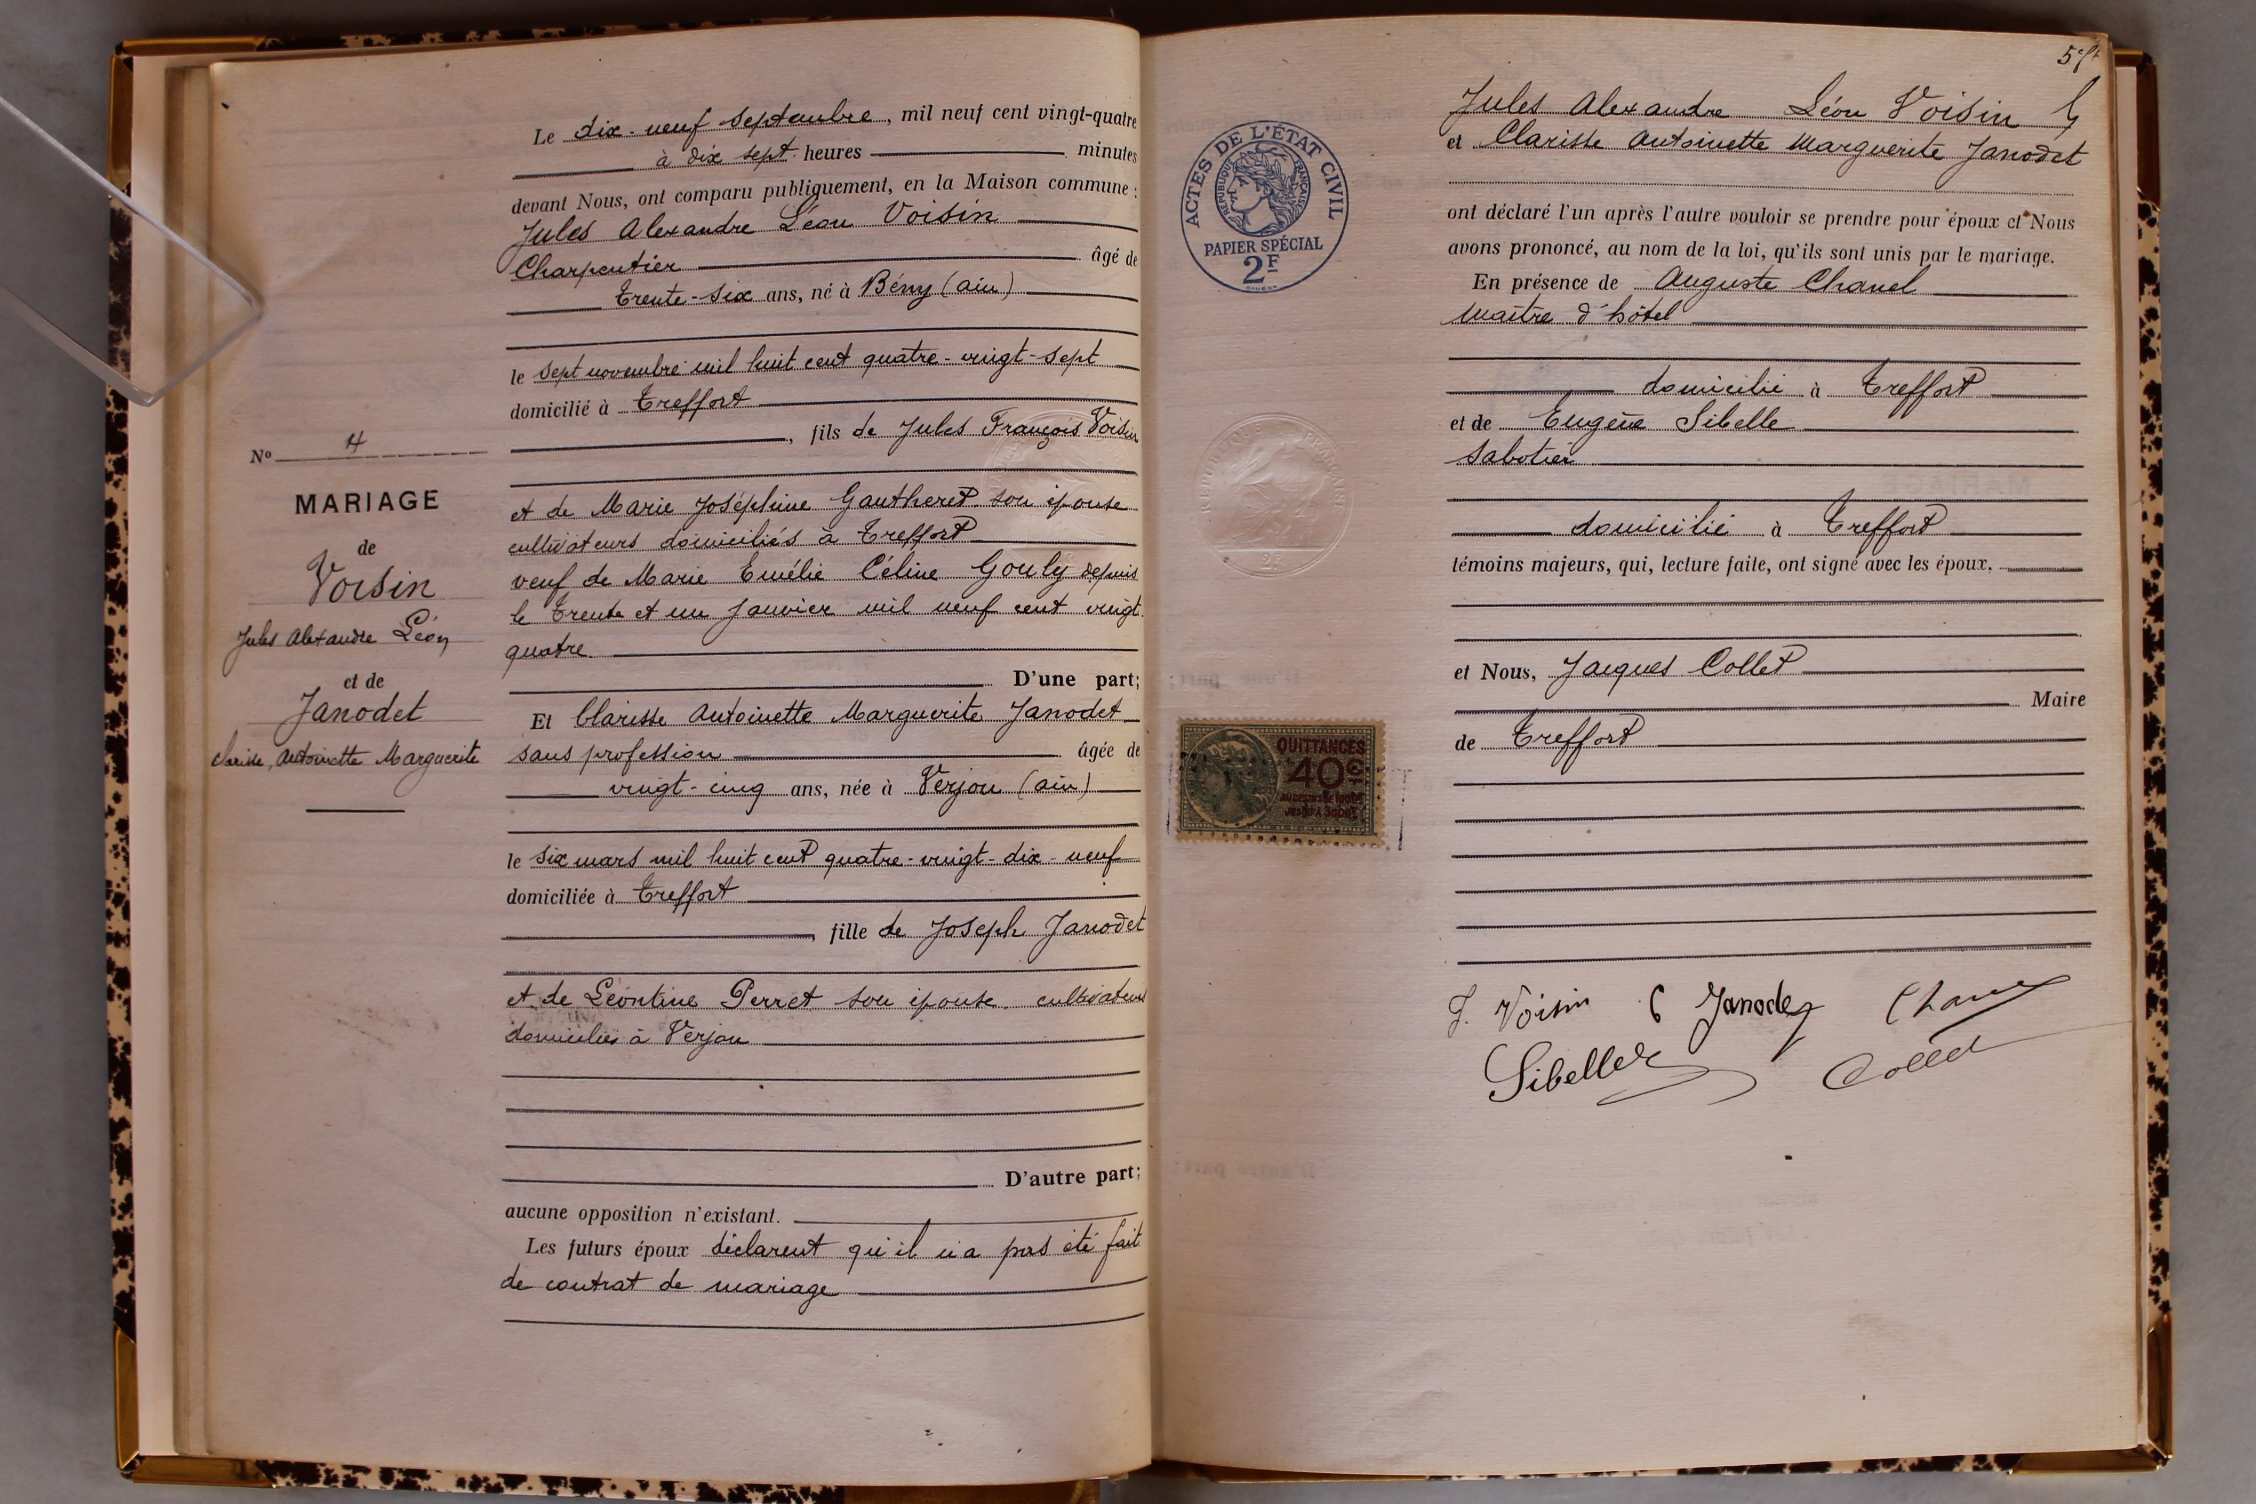 Nº 4
MARIAGE
de
Voisin
Jules Alexandre Léon
et de
Janodet
Clarisse, Antoinette Marguerite
Le dix-neuf septembre, mil neuf cent vingt-quatre
à dix sept heures minutes
devant Nous, ont comparu publiquement, en la Maison commune :
Jules Alexandre Léon Voisin
Charpentier âgé de
trente-six ans, né à Bény (ain)
le sept novembre mil huit cent quatre-vingt-sept
domicilié à Treffort
, fils de Jules François Voisin
et de Marie Joséphine Gautheret son épouse
cultivateurs domiciliés à Treffort
veuf de Marie Emélie Céline Gouly depuis
le trente et un Janvier mil neuf cent vingt
quatre
D'une part;
Et Clarisse Antoinette Marguerite Janodet
sans profession âgée de
vingt-cinq ans, née à Verjon (ain)
le six mars mil huit cent quatre-vingt-dix-neuf
domiciliée à Treffort
, fille de Joseph Janodet
et de Léontine Perret son épouse cultivateurs
domiciliés à Verjon
D'autre part;
aucune opposition n'existant.
Les futurs époux déclarent qu'il n'a pas été fait
de contrat de mariage
ACTES DE L'ÉTAT CIVIL
RÉPUBLIQUE FRANÇAISE
PAPIER SPÉCIAL
2F
QUITTANCES
40c
Jules Alexandre Léon Voisin
et Clarisse Antoinette Marguerite Janodet
ont déclaré l'un après l'autre vouloir se prendre pour époux et Nous
avons prononcé, au nom de la loi, qu'ils sont unis par le mariage.
En présence de Auguste Chanel
maître d'hôtel
domicilié à Treffort
et de Eugène Sibelle
sabotier
domicilié à Treffort
témoins majeurs, qui, lecture faite, ont signé avec les époux.
et Nous, Jacques Collet
Maire
de Treffort
J. Voisin C Janodet Chanel
Sibelle Collet